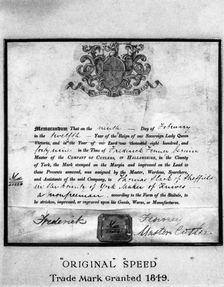 Memorandum That on the ninth Day of February
in the twelfth Year of the Reign of our Sovereign Lady Queen
Victoria, and in the Year of our Lord one thousand eight hundred, and
forty nine in the Time of Frederick Fenney Senior
Master of the Company of Cutlers, in Hallamshire, in the County
of York, the Mark stamped on the Margin and impressed on the Lead to
these Presents annexed, was assigned by the Master, Wardens, Searchers,
and Assistants of the said Company, to Thomas of Sheffield
in the County of York Maker of Knives
a nonfreeman, according to the Form of the Statute, to
be stricken, impressed, or figured upon the Goods, Wares, or Manufactures.
Frederick Fenney
Master Cutler
"ORIGINAL SPEED"
Trade Mark Granted 1849.